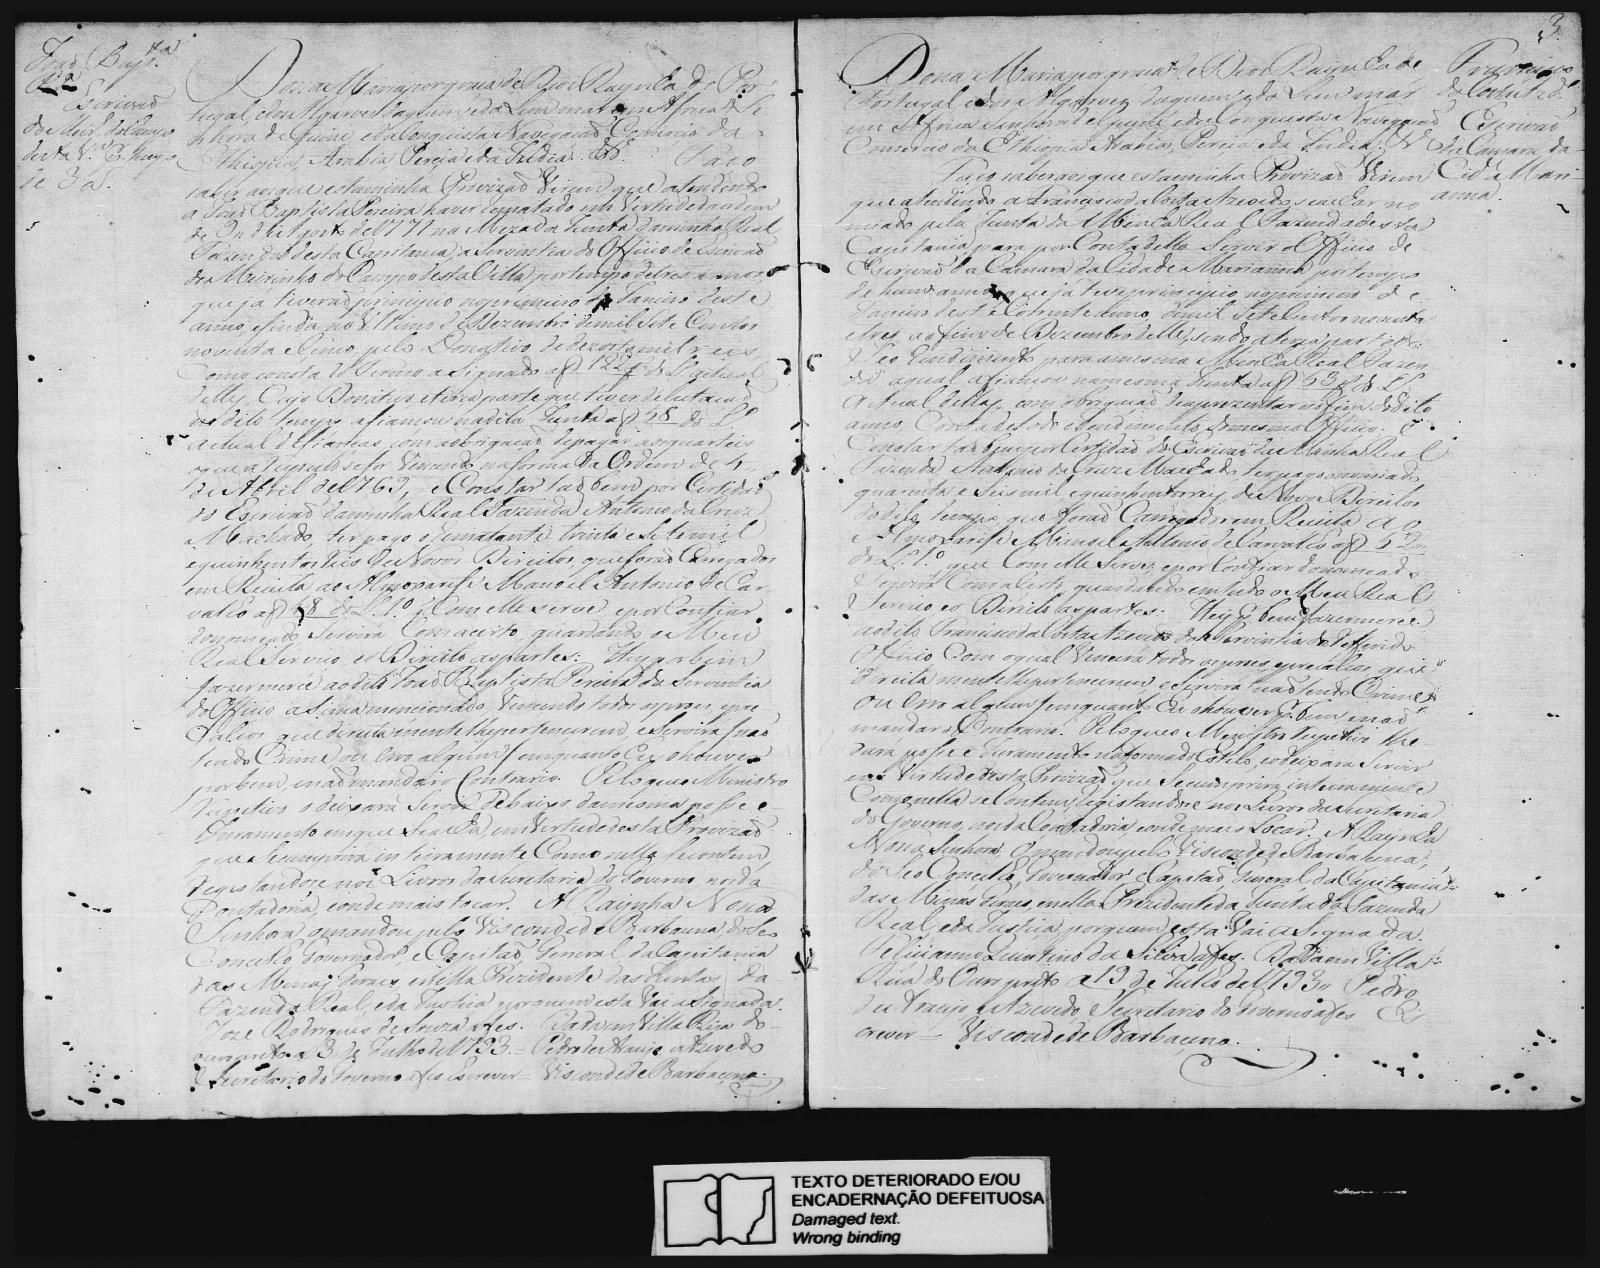 João Bap.ta
P.ra Escrivão
do Meir.o do Campo
desta V.a
de 3 a.
Dona Maria por graça de Deos Raynha de Por
tugal, e dos Algarves daquem, e dalem mar em Africa Se
nhora de Guine e da Conquista Navegação Comercio da
Ethiopia, Arabia Percia e da India. &.ª Faço
saber aos que esta minha Provizão Virem que atendendo
a João Baptista Pereira haver rematado em Virtude da ordem
de de Agosto de 1771 na Meza da Junta da minha Real
Fazenda desta Capitania, a Serventia do Officio de Escrivão
do Meirinho do Campo desta Villa, por tempo de tres annos
que já tiverão principio no primeiro de Janeiro deste
anno, e finda no Ultimo de Dezembro de mil Sete Centos
noventa e Cinco pelo Donativo de dezoito mil reis
Como consta do Termo asignado a f 122 do L.º actual
dellas, Cujo Donativo e terça parte que tiver de lutação
no dito tempo afiansou na dita Junta a f 48 do L.º
actual de fianças com a obrigação de pagar aos quarteis
o que a Respeito se for Vencendo na forma da Ordem de
de Abril de 1769, e Constar tão bem por Certidão
do Escrivão da minha Real Fazenda Antonio da Cruz
Machado, ter pago o Rematante trinta e sete mil
e quinhentos reis de Novos Direitos, que forão Carregados
em Receita ao Almoxarife Manoel Antonio de Car
valho a f 48 do L.º 1.º q' Com elle serve, e por Confiar
do nomeado Servirá Com acerto, guardando o Meu
Real Serviço, e o Direito as partes: Hey por bem
fazer merce ao dito João Baptista Pereira da Serventia
do Officio asima mencionado, Vencendo todos os proes, e pre
calços que direitamente lhe pertencerem, e Servirá (não
tendo Crime, ou erro algum) emquanto Eu o houver
por bem, e não mandar o Contrario. Pelo que o Ministro
respetivo o deixará Servir debaixo da mesma posse e
Juramento em que Se acha em Virtude desta Provizão
que Se cumprirá inteiramente Como nella se contem,
Registandose nos Livros da Secretaria do Governo, nos da
Contadoria, e onde mais tocar. A Raynha Nossa
Senhora o mandou pelo Visconde de Barbacena do Seo
Concelho Governador e Capitão General da Capitania
das Minas Geraes, e nella Prezidente das Juntas da
Fazenda Real, e da Justiça por quem esta Vai asignada.
Joze Rodrigues de Souza a fes. Dada em Villa Rica do
ouro preto a 3 de Julho de 1793. = Pedro de Araujo e Azevedo
Secretario do Governo a fes Escrever = Visconde de Barbacena.
3
Francisco
da Costa Azd.º
Escrivão
da Camara da
Cid.e Mari-
anna.
Dona Maria por graça de Deos Raynha de
Portugal e dos Algarves, daquem, e dalem mar
em Africa Senhora de guine e da Conquista e Navegação
Comercio da Ethiopia Arabia, Percia e da India. &.ª
Faço saber aos que esta minha Provizão Virem
que atendendo a Francisco da Costa Azevedo se achar no
meado pela Junta da Minha Real Fazenda desta
Capitania, para por Conta della Servir o Officio de
Escrivão da Camara da Cidade Marianna por tempo
de hum anno, que já teve principio no primeiro de
Janeiro deste Corrente anno, de mil Sete Centos noventa
e tres, ao fim de Dezembro delle, sendo a terça parte
do Seo Rendimento para a mesma Minha Real Fazen
da aqual afiansou na mesma Junta a f 53 do L.º
actual dellas, com obrigação de aprezentar no fim do dito
anno, Conta de todo o Rendimento do mesmo Officio: E
Constar tão bem por Certidão do Escrivão da Minha Real
Fazenda Antonio da Cruz Machado ter pago o nomeado
quarenta e Seis mil e quinhentos reis de Novos Direitos
do dito tempo que forão Carregados em Receita ao
Almoxarife Manoel Antonio de Carvalho a f 52
do L.º 1.º que Com elle Serve, e por Confiar do nomeado
Servirá Com acerto, guardando em tudo o Meu Real
Serviço e o Direito as partes: Hey p.r bem fazer merce
ao dito Francisco da Costa Azevedo da Serventia do referido
Officio Com o qual Vencerá todos os proes, e precalços que
direitamente lhe pertencerem, e Servirá não tendo Crime
ou erro algum, emquanto Eu o houver p.r bem e não
mandar o Contrario. Pelo que o Menistro respetivo lhe
dará posse e Juramento na forma do Estilo, e o deixará Servir
em Virtude desta Provizão que Se cumprirá inteiramente
Como nella se Contem, registandose nos Livros da Secretaria
do Governo, nos da Contadoria e onde mais tocar. A Raynha
Nossa Senhora o mandou pelo Visconde de Barbacena,
do Seo Concelho, Governador, e Capitão General da Capitania
das Minas Geraes, e nella Prezidente da Junta da Fazenda
Real, e da Justiça, por quem esta Vai asignada.
Feliciano Quintino da Silva a fes. Dada em Villa
Rica do Ouro preto a 19 de Julho de 1793. Pedro
de Araujo, e Azevedo Secretario do Governo a fes Es
crever = Visconde de Barbacena.
TEXTO DETERIORADO E/OU
ENCADERNAÇÃO DEFEITUOSA
Damaged text.
Wrong binding